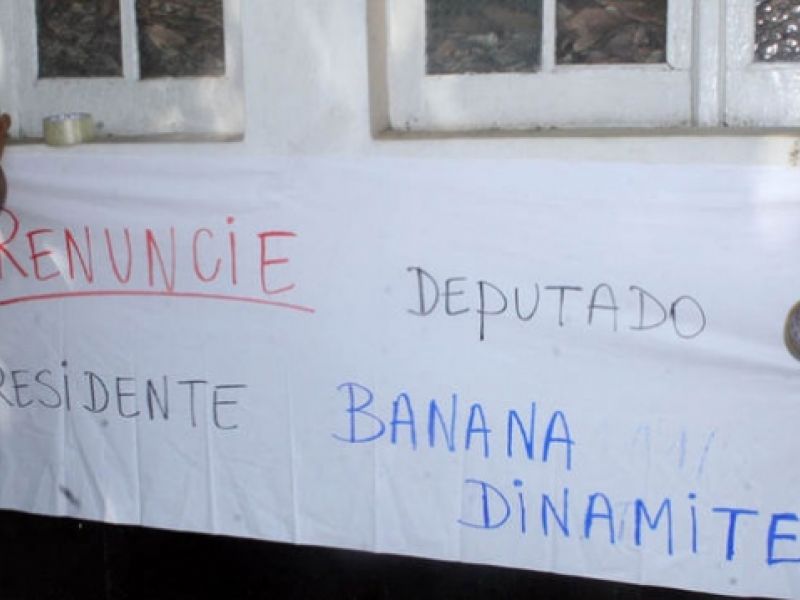 RENUNCIE
DEPUTADO
RESIDENTE
BANANA
DINAMITE